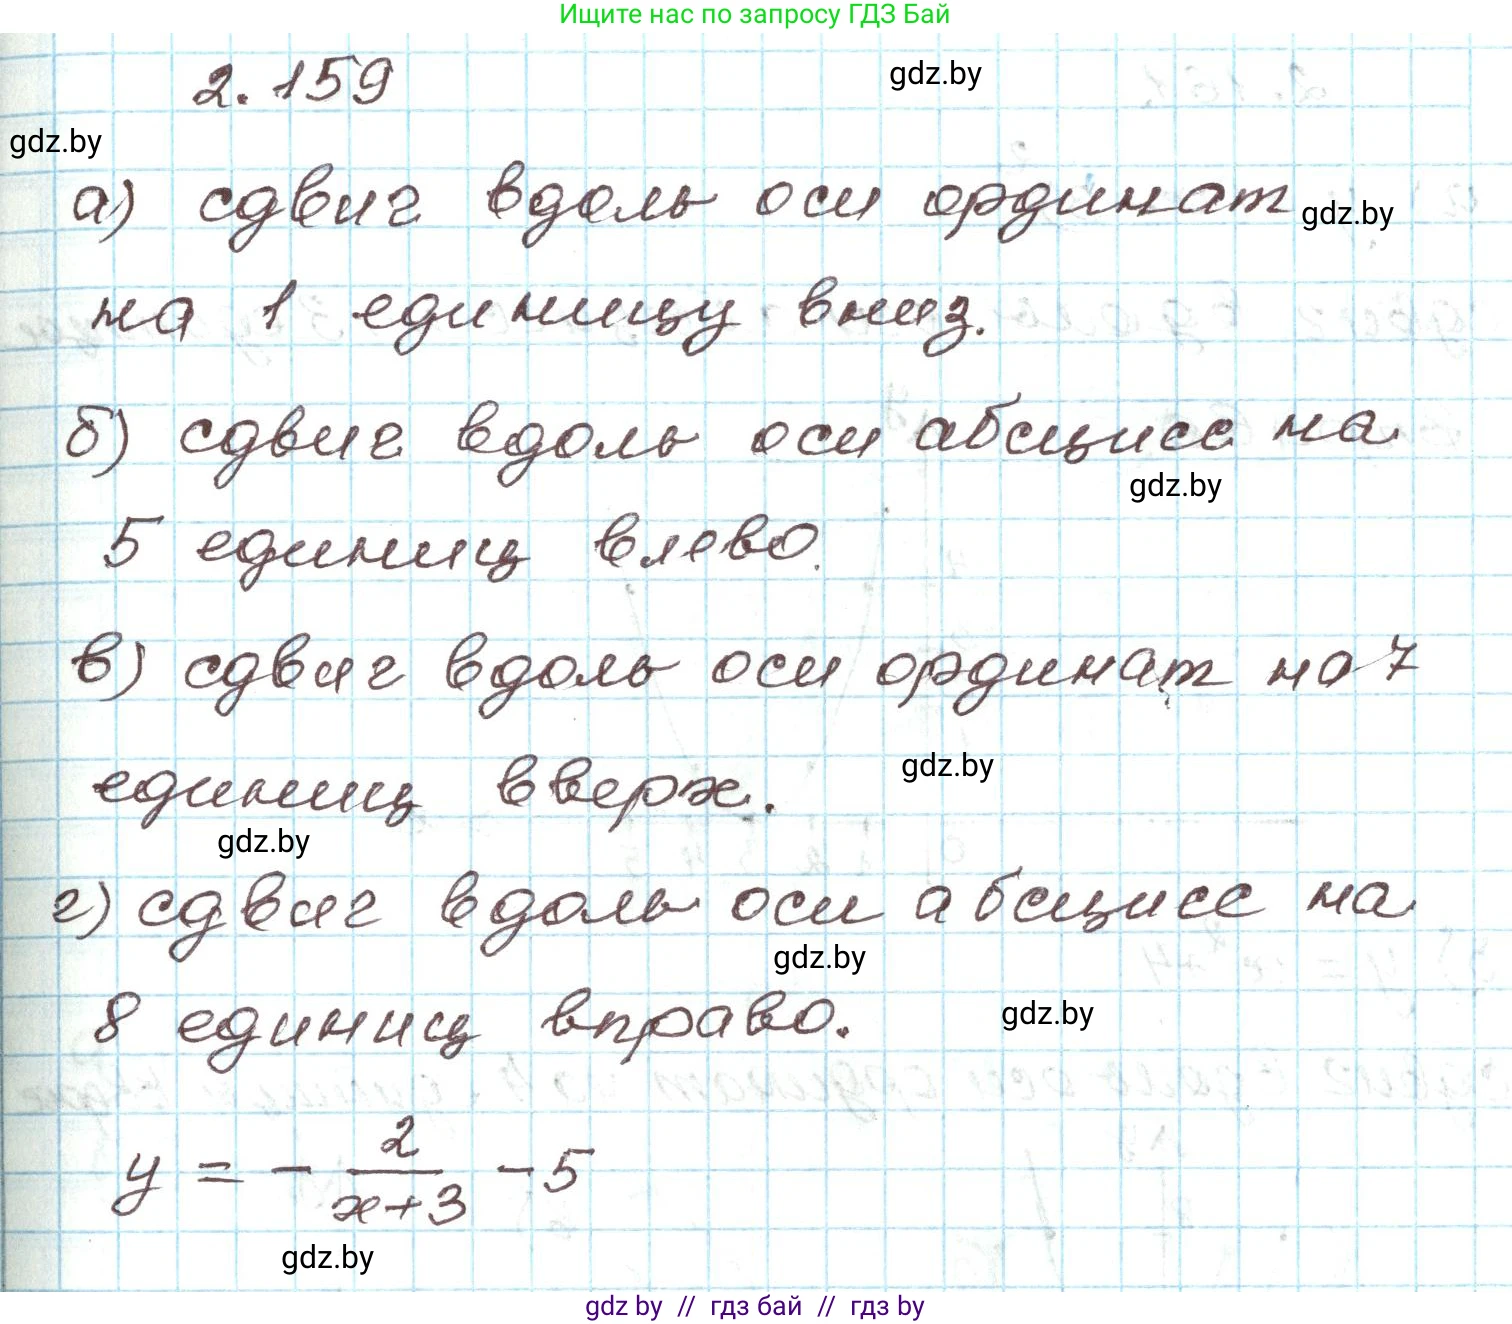 Ищите нас по запросу ГДЗ Бай
2.159
gdz.by
gdz.by
а) сдвиг вдоль оси ординат
gdz.by
на 1 единицу вниз.
б) сдвиг вдоль оси абсцисс на
gdz.by
5 единиц влево.
в) сдвиг вдоль оси ординат на 7
единиц вверх.
gdz.by
gdz.by
г) сдвиг вдоль оси абсцисс на
gdz.by
8 единиц вправо.
gdz.by
y = - 2/(x+3) - 5
gdz.by
gdz by // гдз бай // гдз by